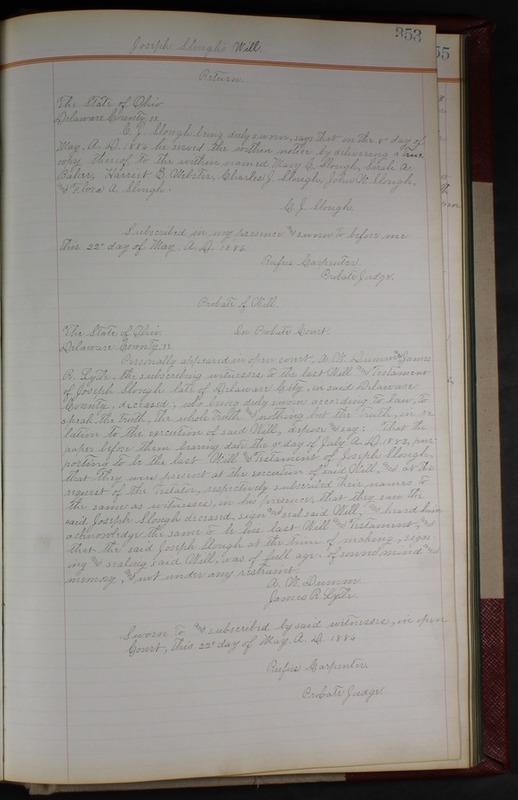 353
55
Joseph Slough's Will.
Return.
The State of Ohio
Delaware County, ss
C. J. Slough being duly sworn, says that on the 8 day of
May. A. D. 1886 he served the within notice by delivering a true
copy thereof to the within named Mary E. Slough, Sarah A.
Baker, Harriet B. Webster, Charles J. Slough, John W. Slough,
and Flora A. Slough.
C. J. Slough
Subscribed in my presence and sworn to before me
this 22d day of May. A. D. 1886
Rufus Carpenter
Probate Judge.
Probate of Will.
The State of Ohio
In Probate Court.
Delaware County, ss
Personally appeared in open court, A. W. Dumm and James
R. Lytle, the subscribing witnesses to the last Will and Testament
of Joseph Slough late of Delaware City, in said Delaware
County, deceased, who being duly sworn according to law, to
speak the truth, the whole truth and nothing but the truth, in re
lation to the execution of said Will, depose and say: That the
paper before them bearing date the day of July A. D. 1882, pur
porting to be the last Will and Testament of Joseph Slough,
that they were present at the execution of said Will, and at the
request of the Testator, respectively subscribed their names to
the same as witnesses, in his presence, that they saw the
said Joseph Slough deceased, sign and seal said Will, and heard him
acknowledge the same to be his last Will and Testament, and
that the said Joseph Slough at the time of making, sign
ing and sealing said Will, was of full age, of sound mind and
memory, and not under any restraint.
A. W. Dumm
James R. Lytle.
Sworn to and subscribed by said witnesses, in open
Court, this 22d day of May. A. D. 1886
Rufus Carpenter
Probate Judge